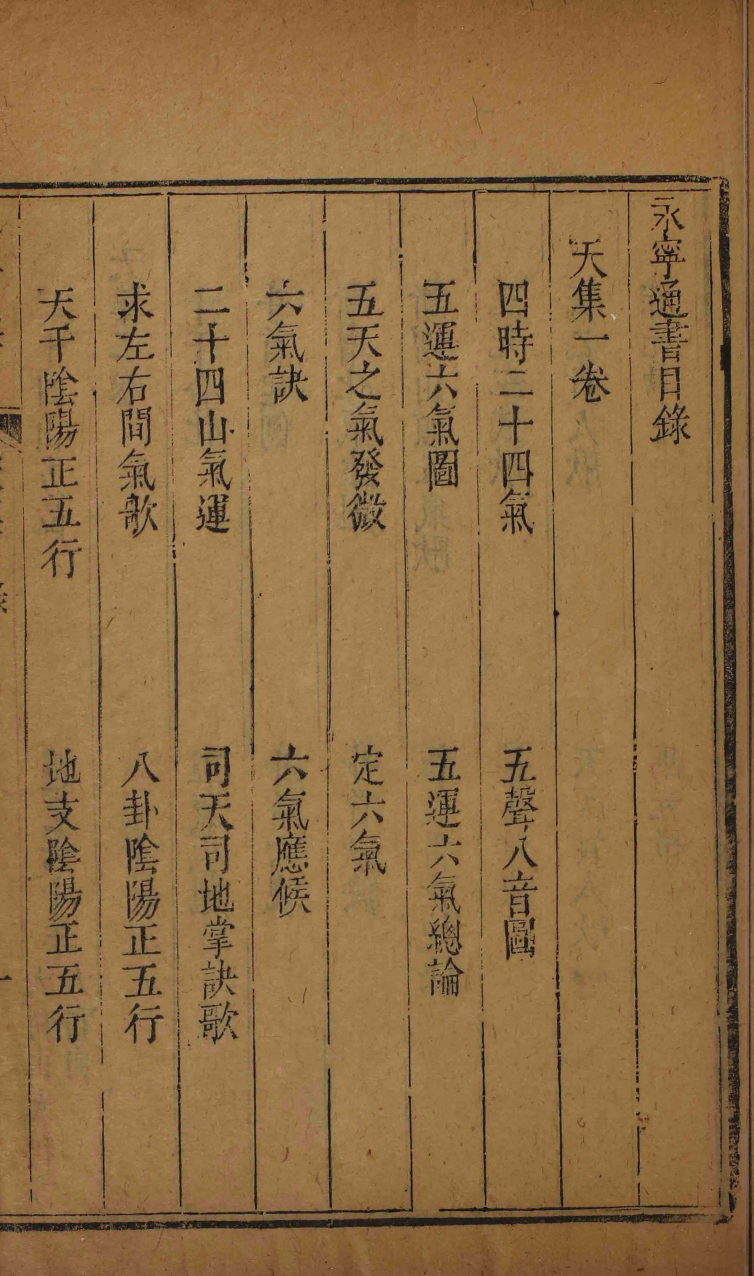 永寧通書目錄
天集一卷
四時二十四氣　五聲八音圖
五運六氣圖　五運六氣總論
五天之氣發微　定六氣
六氣訣　六氣應候
二十四山氣運　司天司地掌訣歌
求左右間氣歌　八卦陰陽正五行
天干陰陽正五行　地支陰陽正五行